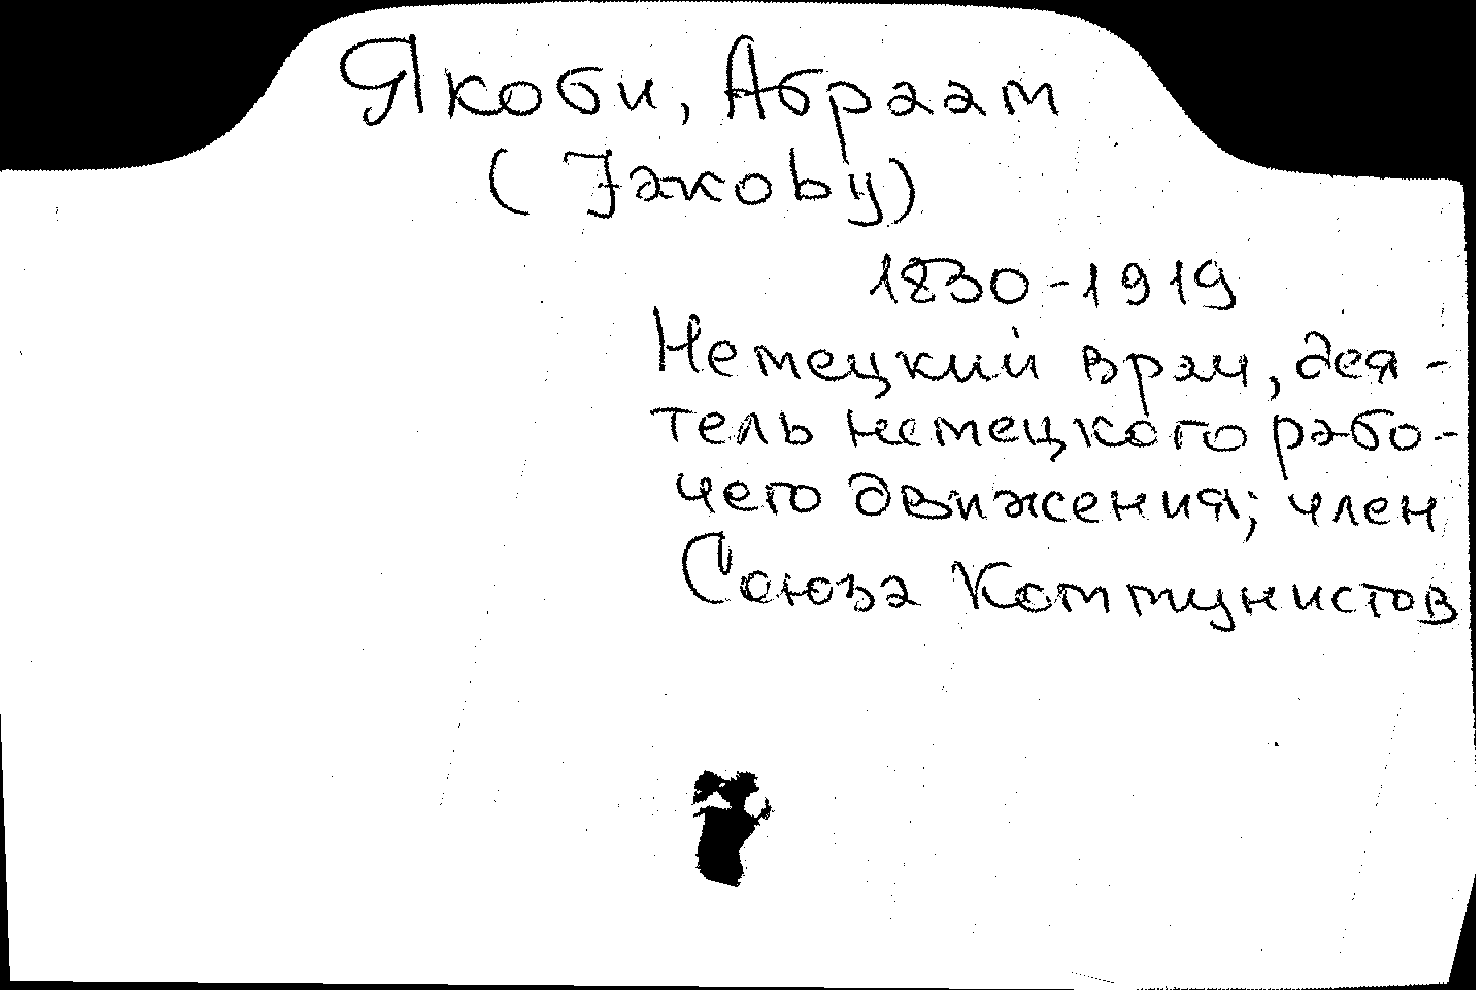 Якоби, Абраам
(Jakoby)
1830-1919
Немецкий врач, дея-
тель немецкого рабо-
чего движения; член
Союза Коммунистов